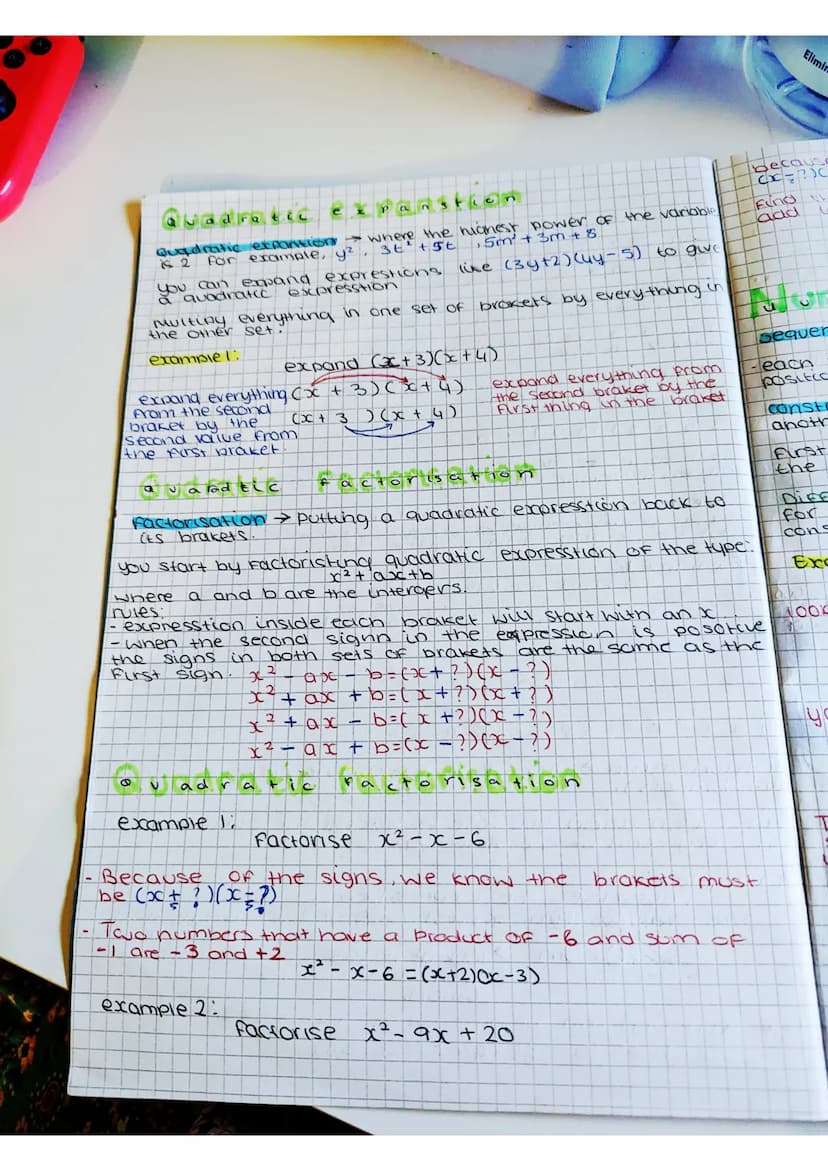 Quadratic expanstion
Quadratic expantion → where the highest power of the variable
is 2 for example, y², 3t² + 5t, 5m² + 3m + 8
you can expand expresstions like (3y+2)(4y-5) to give
a quadratic expresstion
Multiply everything in one set of brakets by everything in
the other set.
example 1:
expand (x+3)(x+4)
expand everything
from the second
braket by the
second value from
the first braket.
(x + 3)(x + 4)
(x + 3)(x + 4)
expand everything from
the second braket by the
first thing in the braket
Quadratic factorisation
Factorisation → putting a quadratic expresstion back to
its brakets.
you start by factoristing quadratic expresstion of the type:
x² + ax + b
where a and b are the intergers.
rules:
- expresstion inside each braket will start with an x
- when the second signn in the expression is posotive
the signs in both sets of brakets are the same as the
first sign.
x² - ax - b = (x+?)(x-?)
x² + ax + b = (x+?)(x+?)
x² + ax - b = (x+?)(x-?)
x² - ax + b = (x-?)(x-?)
Quadratic factorisation
example 1:
factorise x² - x - 6
- Because of the signs, we know the brakets must
be (x + ?)(x - ?)
- Two numbers that have a product of -6 and sum of
-1 are -3 and +2
x² - x - 6 = (x+2)(x-3)
example 2:
factorise x² - 9x + 20
Elimin
becaus
Find
add
Num
sequen
- each
positio
const
anoth
First
the
Diff
for
cons
Exa
100
T